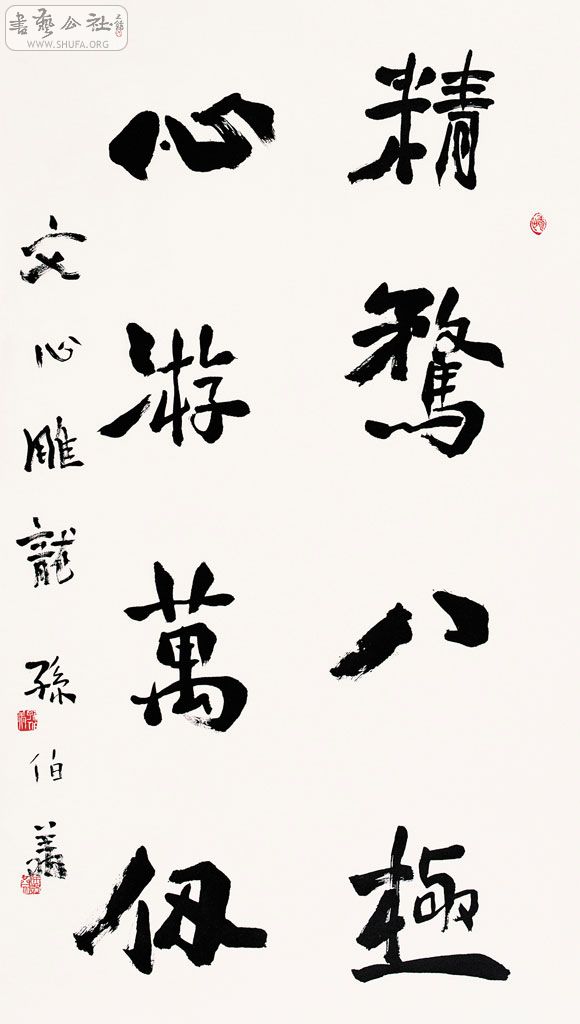 精骛八極
心游萬仞
文心雕龍 孫伯翔
書藝公社
WWW.SHUFA.ORG